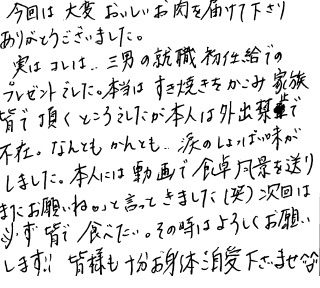 今回は大変おいしいお肉を届けて下さり
ありがとうございました。
実はコレは‥三男の就職初任給での
プレゼントでした。本当はすき焼きをかこみ家族
皆で頂くところでしたが本人は外出禁で
不在。なんともかんとも‥涙のしょっぱい味が
しました。本人には動画で食卓風景を送り
またお願いね。」と言ってきました(笑)次回は
必ず皆で食べたい。その時はよろしくお願い
します!! 皆様も十分お身体ご自愛下さいませ